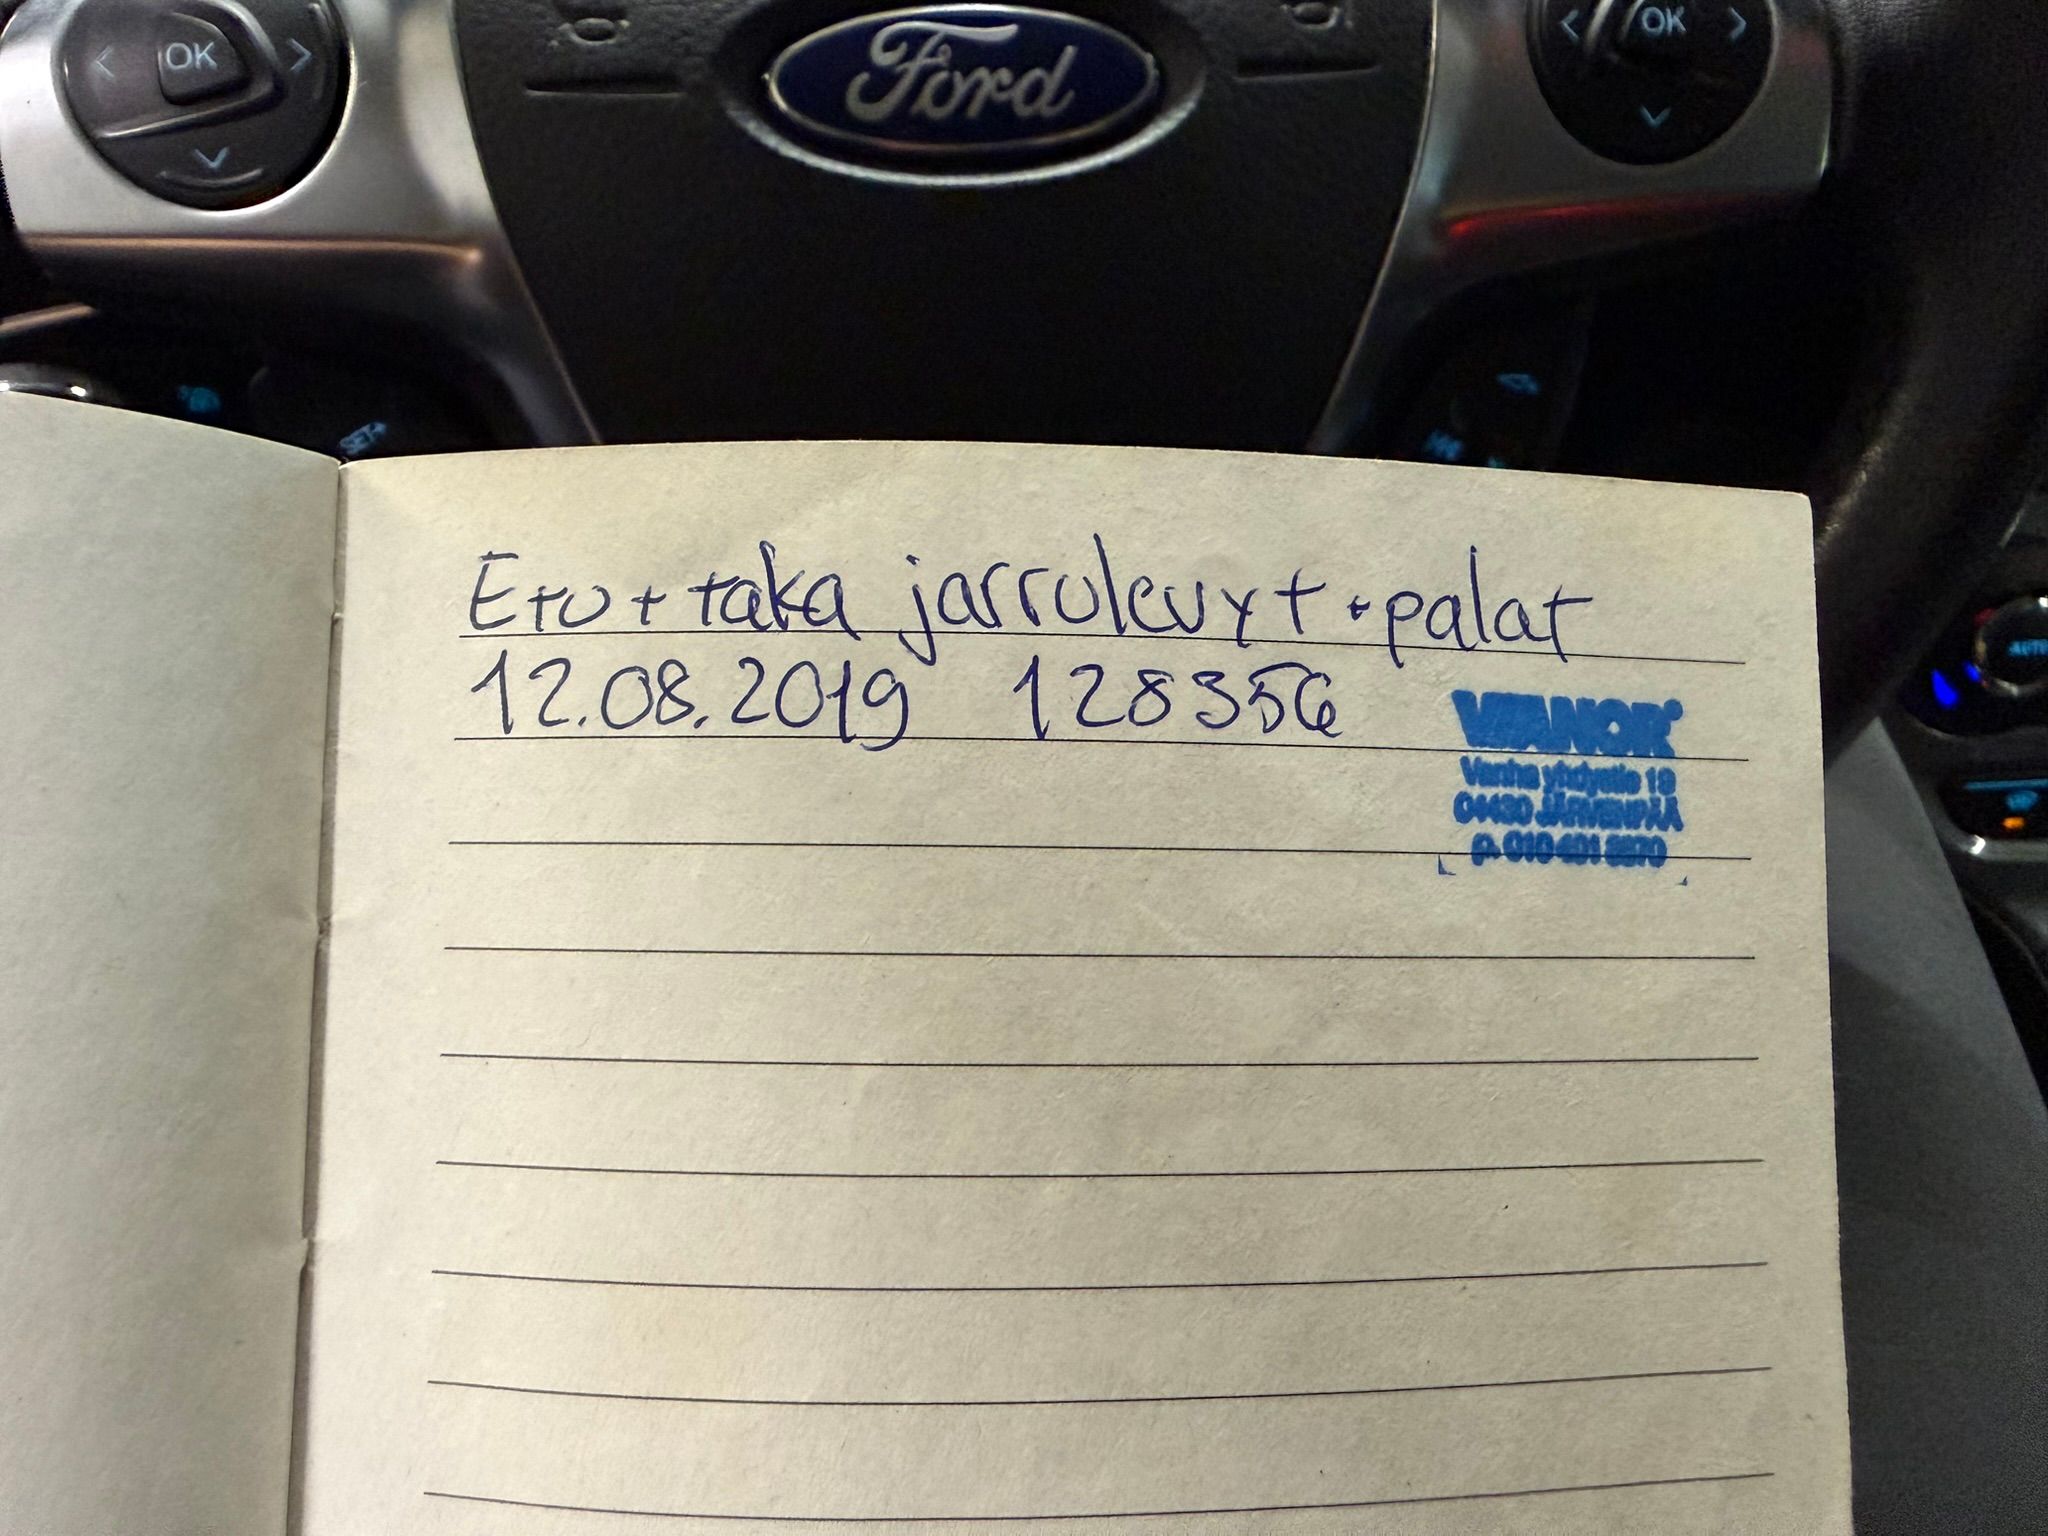 OK
Ford
OK
SET+
AUTO
Etu + taka jarrulevyt + palat
12.08.2019 128356
VIANOR
Vanha yhdystie 19
04430 JÄRVENPÄÄ
p. 010 401